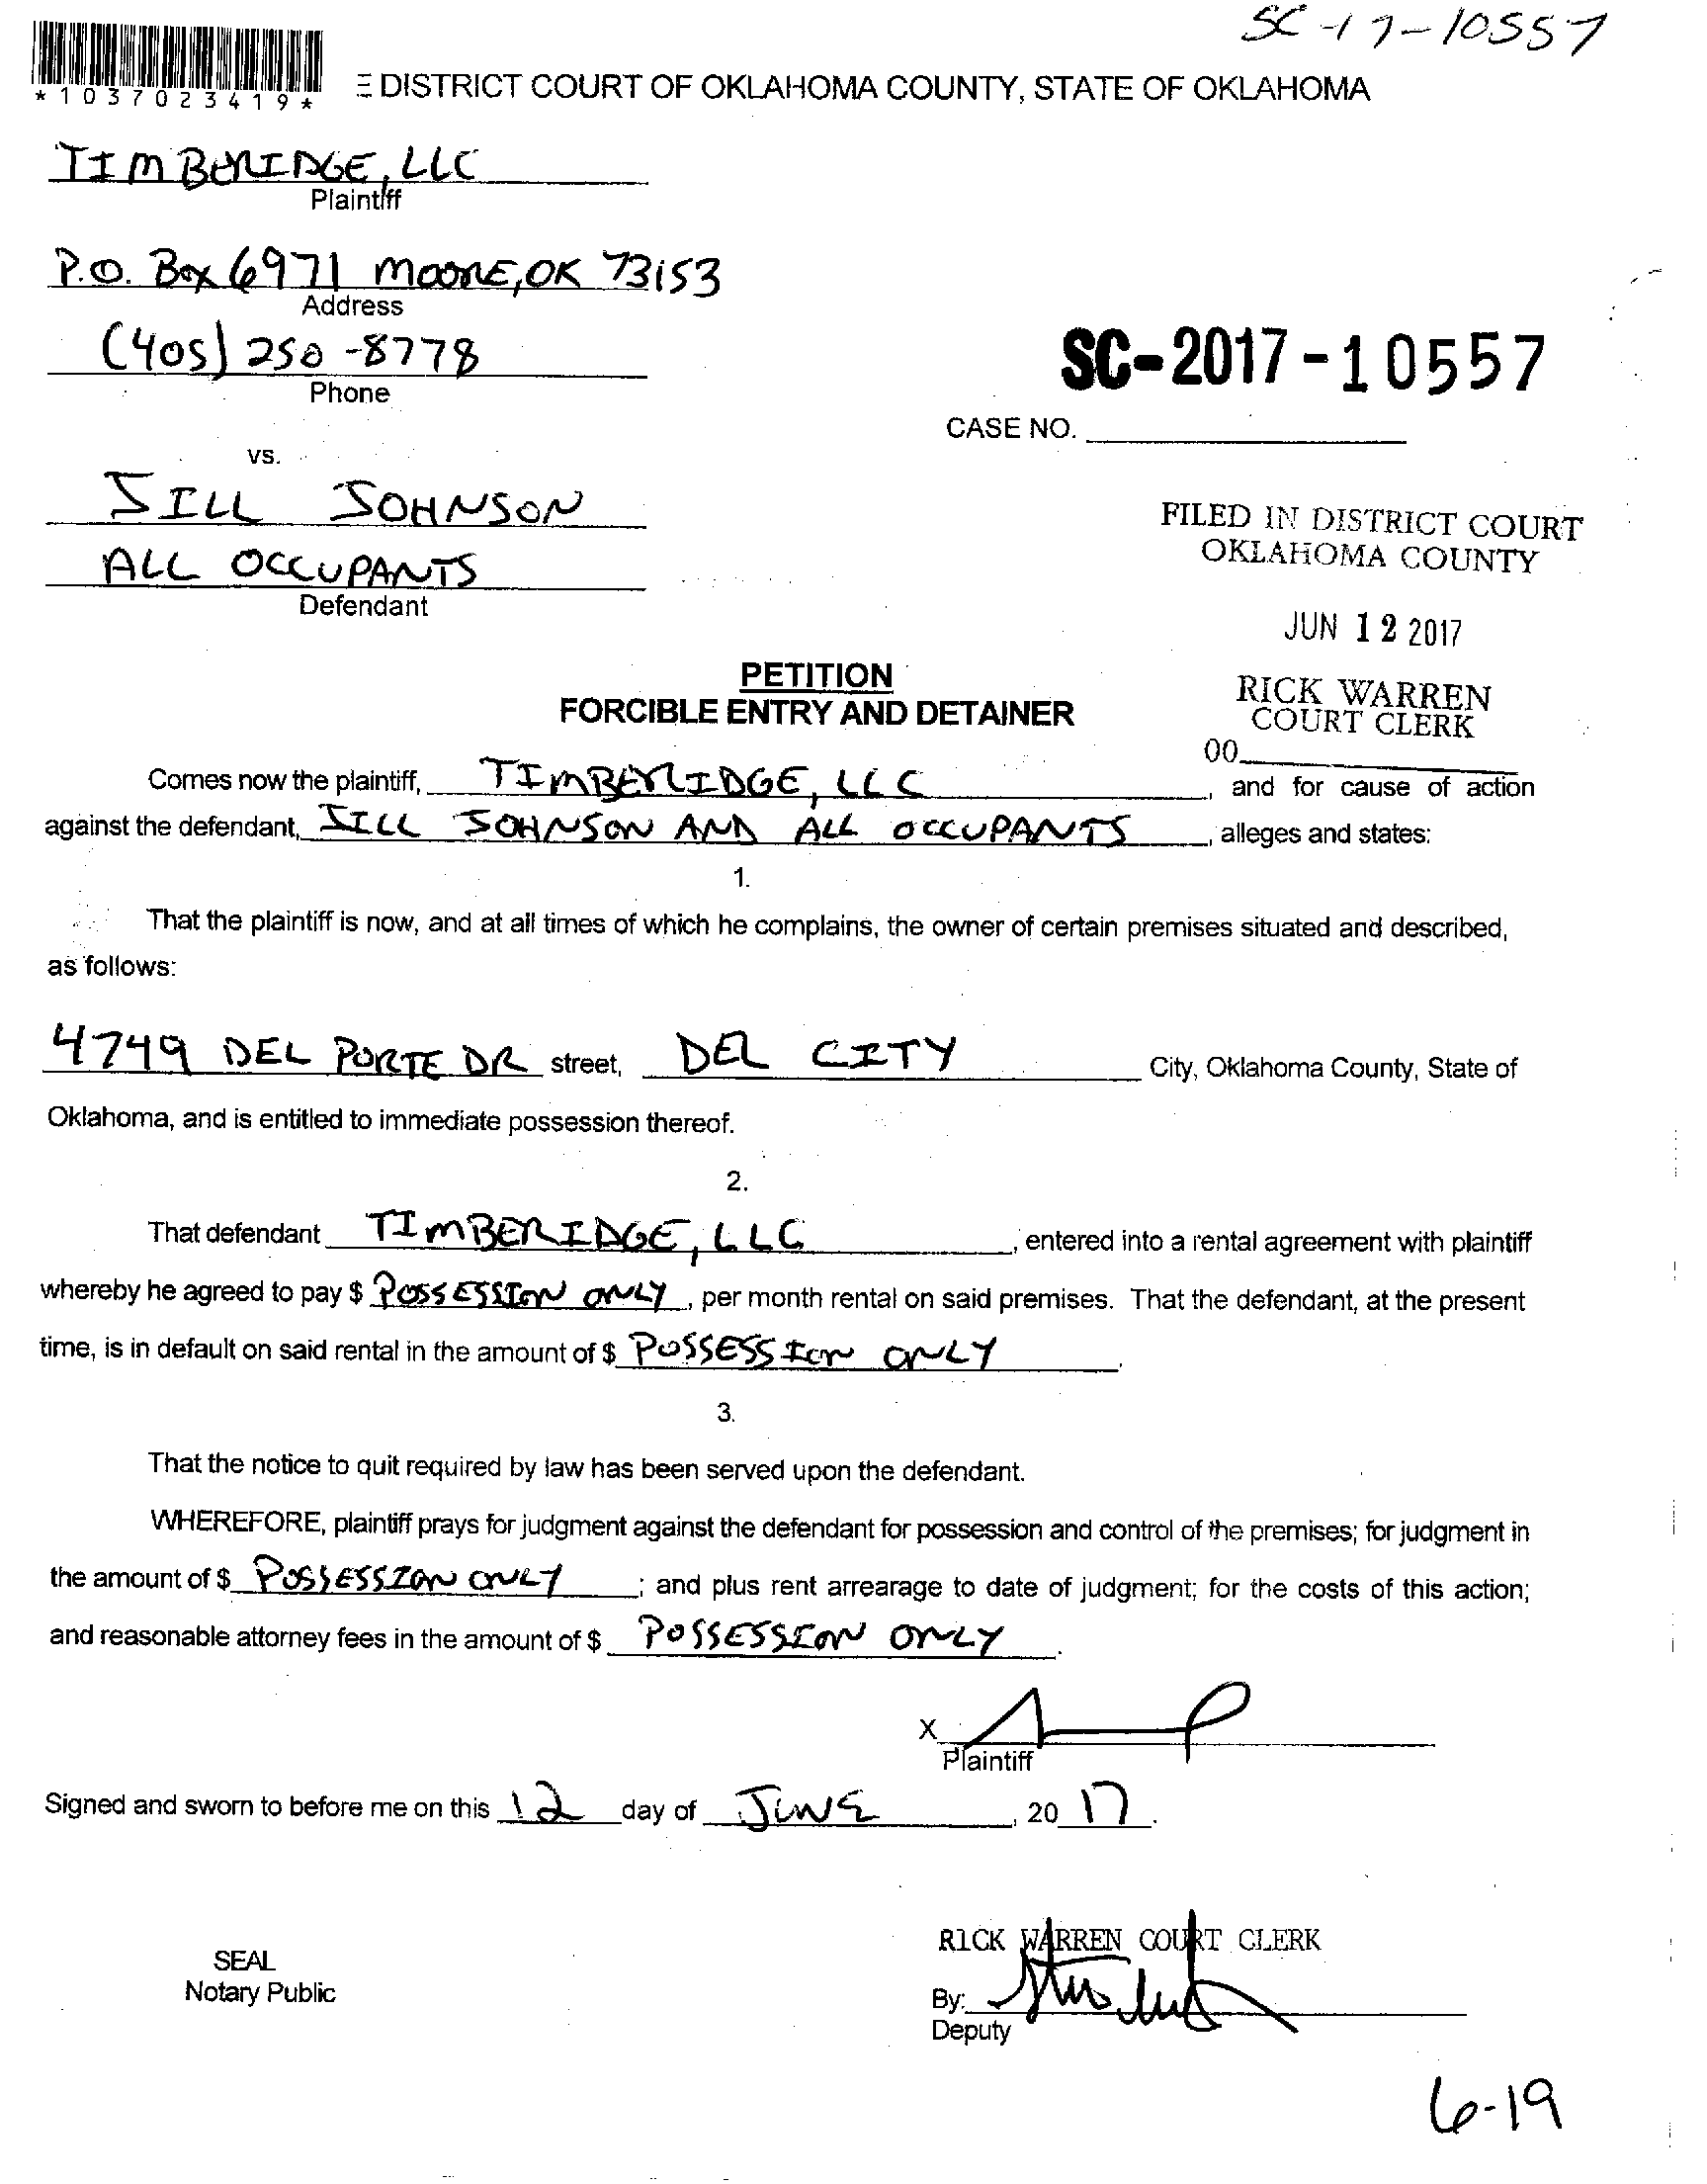 SC-17-10557
*1037023419*
E DISTRICT COURT OF OKLAHOMA COUNTY, STATE OF OKLAHOMA
TIMBERIDGE, LLC
Plaintiff
P.O. Box 6971 MOORE, OK 73153
Address
(405) 250-8778
Phone
SC-2017-10557
CASE NO.
vs.
JILL JOHNSON
ALL OCCUPANTS
Defendant
FILED IN DISTRICT COURT
OKLAHOMA COUNTY
JUN 12 2017
RICK WARREN
COURT CLERK
00
PETITION
FORCIBLE ENTRY AND DETAINER
Comes now the plaintiff, TIMBERIDGE, LLC, and for cause of action
against the defendant, JILL JOHNSON AND ALL OCCUPANTS, alleges and states:
1.
That the plaintiff is now, and at all times of which he complains, the owner of certain premises situated and described,
as follows:
4749 DEL PORTE DR street, DEL CITY City, Oklahoma County, State of
Oklahoma, and is entitled to immediate possession thereof.
2.
That defendant TIMBERIDGE, LLC, entered into a rental agreement with plaintiff
whereby he agreed to pay $ POSSESSION ONLY, per month rental on said premises. That the defendant, at the present
time, is in default on said rental in the amount of $ POSSESSION ONLY.
3.
That the notice to quit required by law has been served upon the defendant.
WHEREFORE, plaintiff prays for judgment against the defendant for possession and control of the premises; for judgment in
the amount of $ POSSESSION ONLY; and plus rent arrearage to date of judgment; for the costs of this action;
and reasonable attorney fees in the amount of $ POSSESSION ONLY.
X
Plaintiff
Signed and sworn to before me on this 12 day of JUNE, 20 17.
RICK WARREN COURT CLERK
SEAL
Notary Public
By:
Deputy
6-19